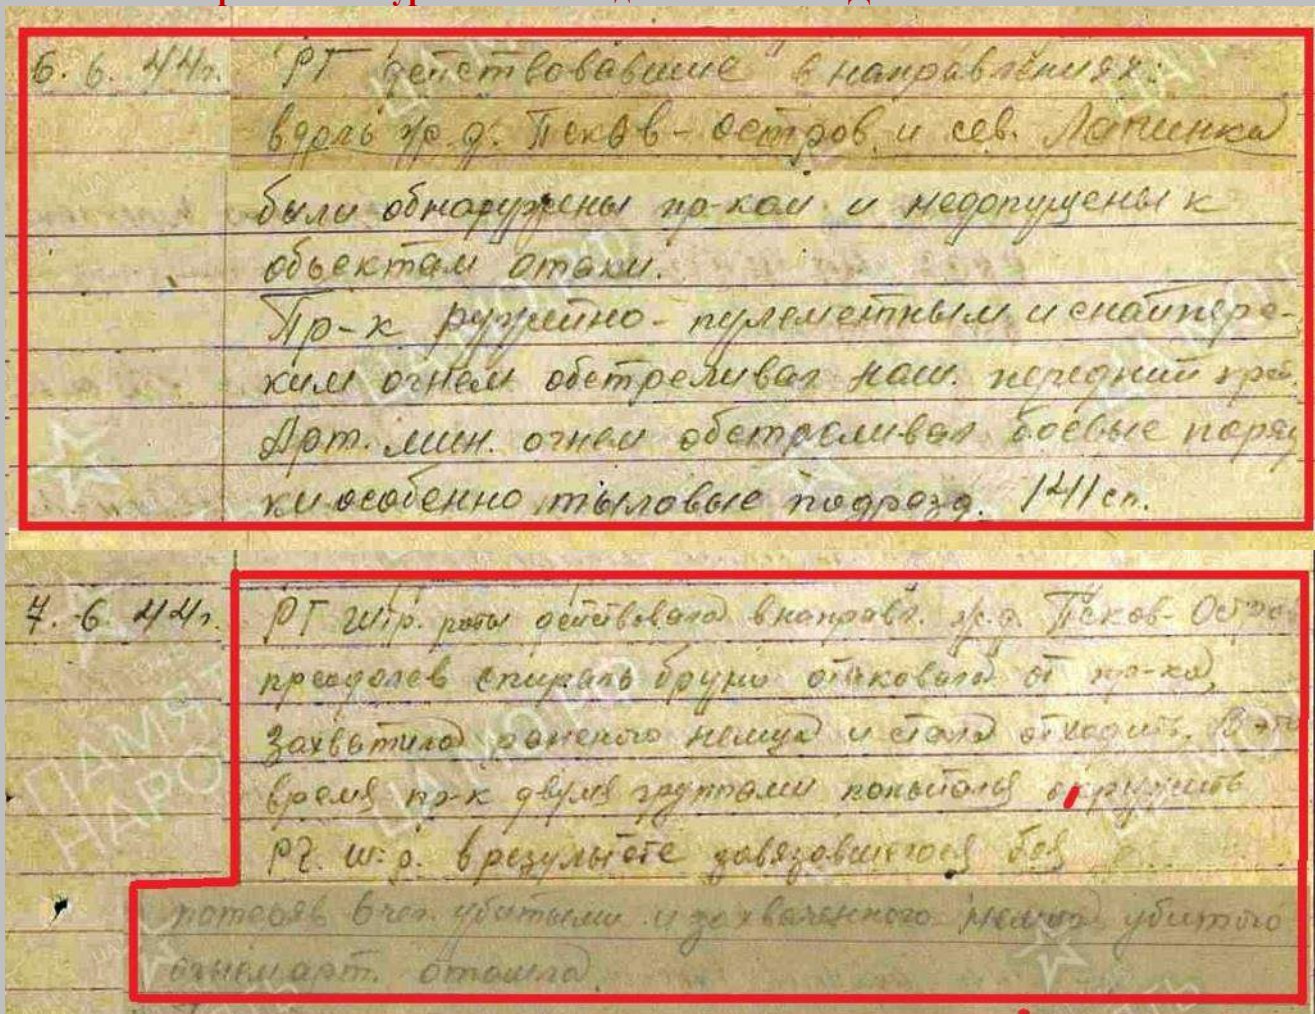 6. 6. 44г. РГ действовавшие в направлениях:
вдоль ж.д. Псков - Остров и сев. Лапинка
были обнаружены пр-ком и недопущены к
объектам атаки.
Пр-к ружейно - пулеметным и снайперс-
ким огнем обстреливал наш. передний край.
Арт. мин. огнем обстреливал боевые поряд
ки особенно тыловые подрозд. 141 сп.
7. 6. 44г. РГ штр. роты действовала в направл. ж.д. Псков - Остро
преодолев спираль бруно атаковала
захватила раненого немца и стала отходить. В это
время пр-к двумя группами попытался окружить
РГ. ш. р. в результате завязавшегося боя
потеряв 6 чел. убитыми и захваченного немца убитого
огнем арт. отошла
ЦАМО РФ
ПАМЯТЬ
НАРО